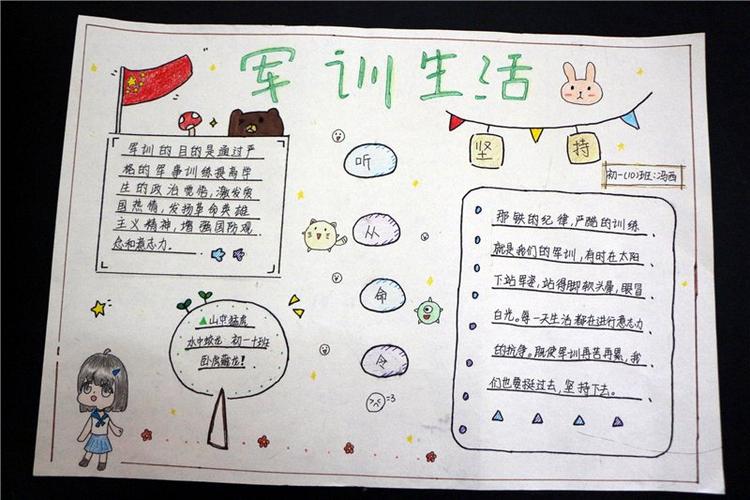 军训生活
坚持
初一(10)班:冯西
军训的目的是通过严
格的军事训练提高学
生的政治觉悟,激发爱
国热情,发扬革命英雄
主义精神,增强国防观
念和意志力。
听
从
命
令
山中猛虎
水中蛟龙 初一十班
卧虎藏龙!
那铁的纪律,严酷的训练
就是我们的军训,有时在太阳
下站军姿,站得脚软头晕,眼冒
白光。每一天生活都在进行意志力
的抗争。既使军训再苦再累,我
们也要挺过去,坚持下去。